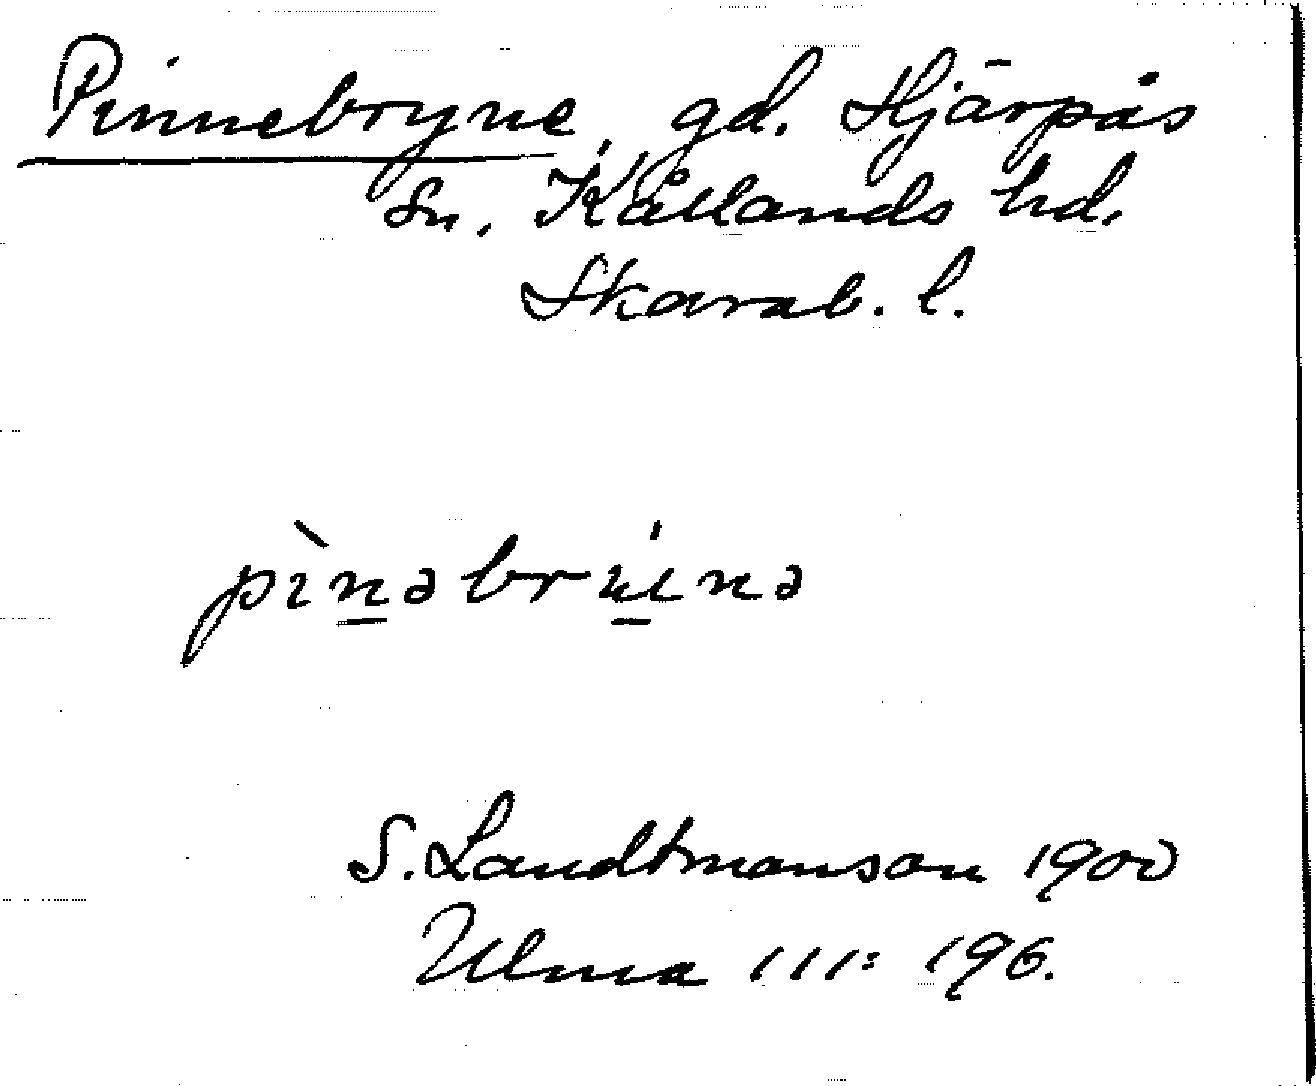 Pinnebryne, gd. Hjärpås
sn. Kållands hd.
Skarab. l.
pìn̲əbrú̲ɪnə
S. Landtmanson 1900
Ulma 111: 196.